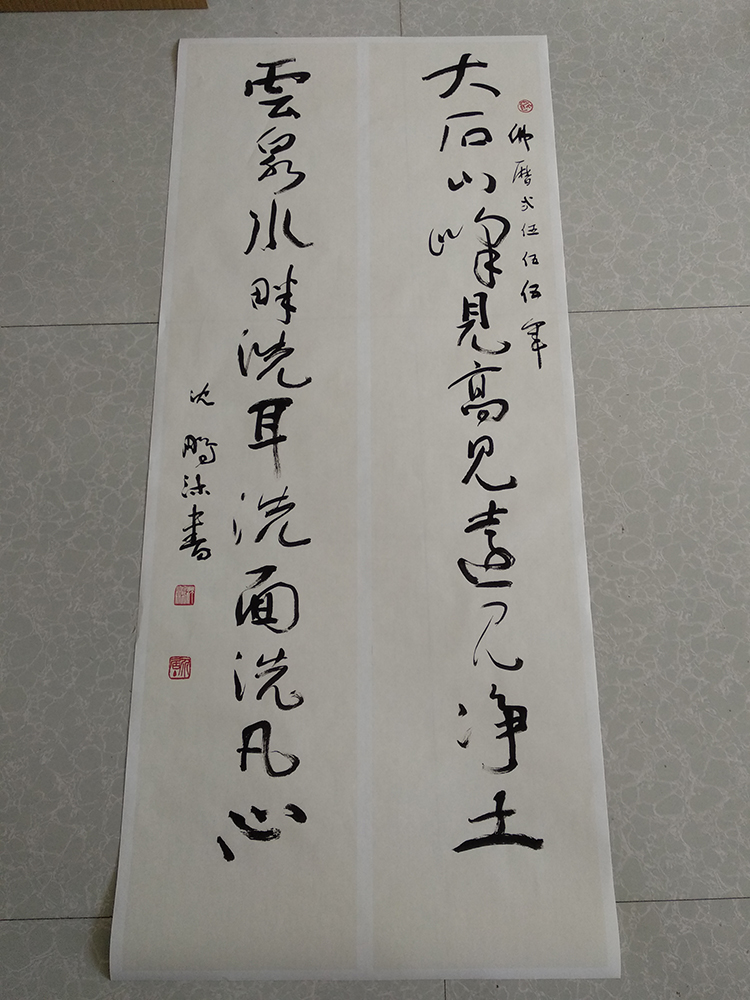 佛曆弍伍伍伍年
大石山峰見高見遠見净土
雲泉水畔洗耳洗面洗凡心
沈鵬沐書